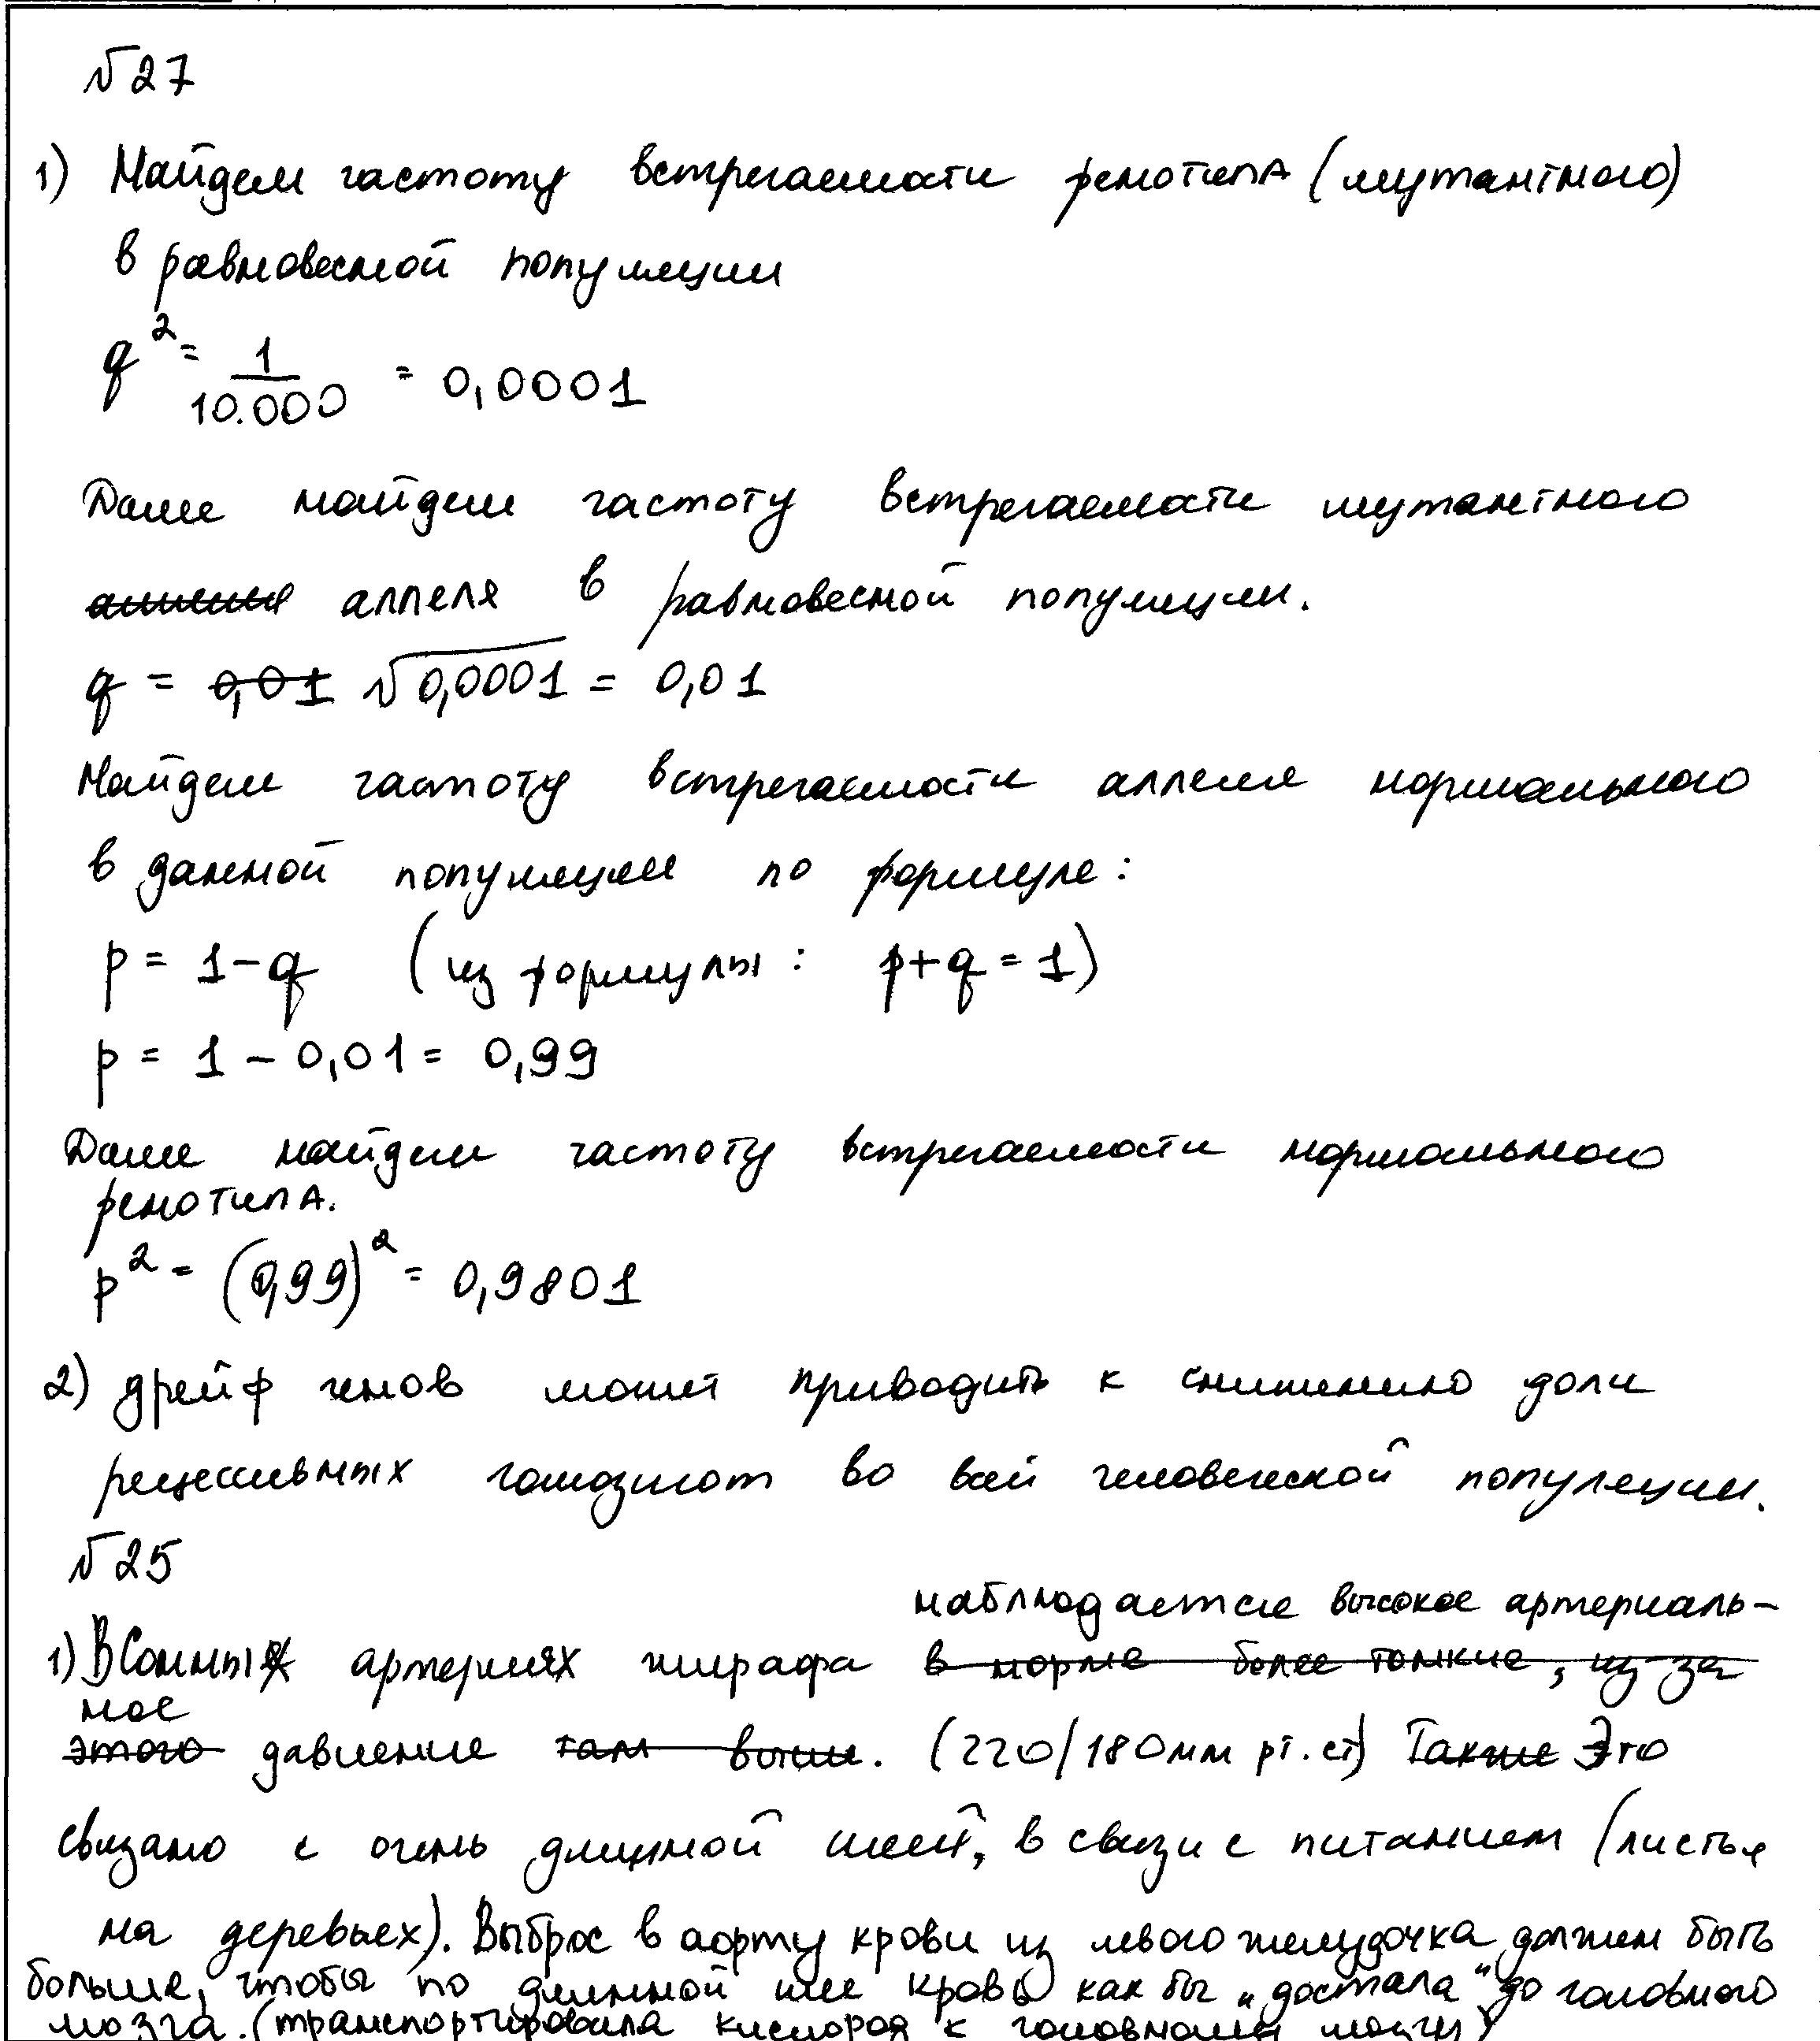 №27
1) Найдем частоту встречаемости фенотипа (мутантного)
в равновесной популяции
q² = 1/10.000 = 0,0001
Далее найдем частоту встречаемости мутантного
аллеля в равновесной популяции.
q = 0,01 √0,0001 = 0,01
Найдем частоту встречаемости аллеля нормального
в данной популяции по формуле:
p = 1-q (из формулы: p+q=1)
p = 1 - 0,01 = 0,99
Далее найдем частоту встречаемости нормального
фенотипа.
p² = (0,99)² = 0,9801
2) дрейф генов может приводить к снижению доли
рецессивных гомозигот во всей человеческой популяции.
№25
наблюдается высокое артериаль-
1) В Сонных артериях жирафа в норме более тонкие, из-за
ное
этого давление там выше. (220/180мм рт.ст) Также Это
связано с очень длинной шеей, в связи с питанием (листья
на деревьех). Выброс в аорту крови из левого желудочка должен быть
больше, чтобы по длинной шее кровь как бы „достала" до головного
мозга. (транспортировала кислород к головному мозгу)